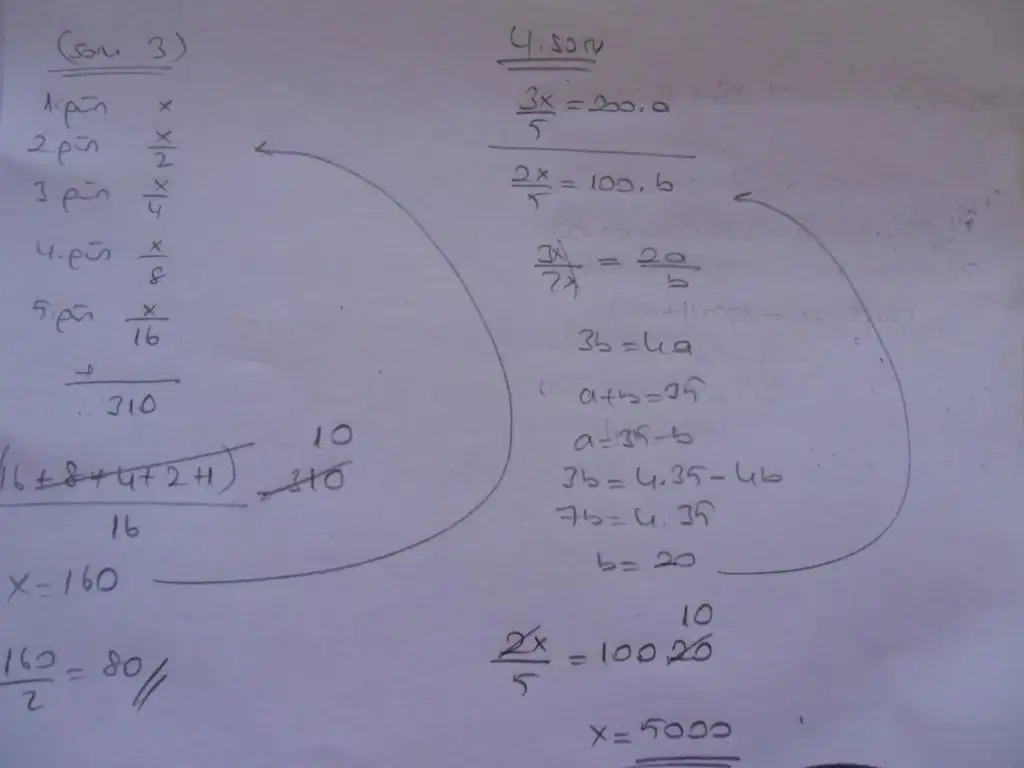 (soru 3)
1.gün x
2.gün x/2
3.gün x/4
4.gün x/8
5.gün x/16
+
310
(16+8+4+2+1)/16 = 310 10
x=160
160/2 = 80//
4.soru
3x/5 = 200.a
2x/5 = 100.b
3x/2x = 2a/b
3b=4a
a+b=35
a=35-b
3b=4.35-4b
7b=4.35
b=20
2x/5 = 100.20 10
x=5000